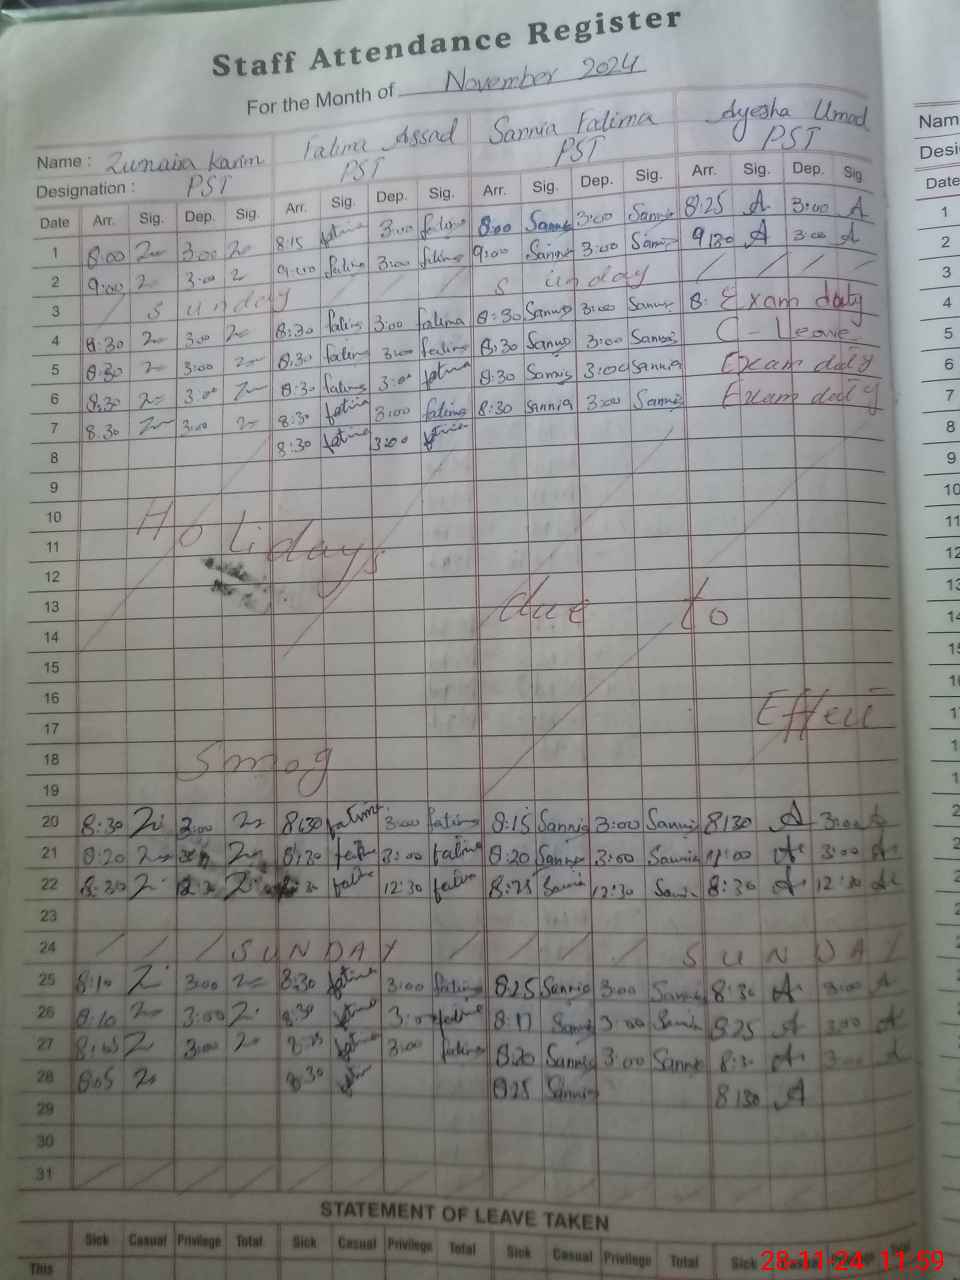 Staff Attendance Register
For the Month of November 2024
Name : Zunaira Karim Fatima Assad Sannia Fatima Ayesha Umad Nam
Designation : PST PST PST PST Desi
Date Arr. Sig. Dep. Sig. Arr. Sig. Dep. Sig. Arr. Sig. Dep. Sig. Arr. Sig. Dep. Sig. Date
1 8:00 3:00 8:15 fatima 3:00 fatima 8:00 Sannia 3:00 Sannia 8:25 A 3:00 A 1
2 9:00 3:00 9:00 fatima 3:00 fatima 9:00 Sannia 3:00 Sannia 9:30 A 3:00 A 2
3 Sunday Sunday 3
4 8:30 3:00 8:30 fatima 3:00 fatima 8:30 Sannia 3:00 Sannia 8: Exam duty 4
5 8:30 3:00 8:30 fatima 3:00 fatima 8:30 Sannia 3:00 Sannia C - Leave 5
6 8:30 3:00 8:30 fatima 3:00 fatima 8:30 Sannia 3:00 Sannia Exam duty 6
7 8:30 3:00 8:30 fatima 3:00 fatima 8:30 Sannia 3:00 Sannia Exam duty 7
8 8:30 fatima 3:00 fatima 8
9 9
10 10
11 Holidays 11
12 12
13 due to 13
14 14
15
16
17 Effect
18 Smog
19
20 8:30 3:00 8:30 fatima 3:00 fatima 8:15 Sannia 3:00 Sannia 8:30 A 3:00 A
21 8:20 8:30 fatima 3:00 fatima 8:20 Sannia 3:00 Sannia A 3:00 A
22 8:30 12:30 fatima 12:30 fatima 8:25 Sannia 12:30 Sannia 8:30 A 12:30 A
23
24 SUNDAY SUNDAY
25 8:10 3:00 8:30 fatima 3:00 fatima 8:25 Sannia 3:00 Sannia 8:30 A 3:00 A
26 8:10 3:00 8:30 fatima 3:00 fatima 8:17 Sannia 3:00 Sannia 8:25 A 3:00 A
27 8:05 3:00 8:25 fatima 3:00 fatima 8:20 Sannia 3:00 Sannia 8:30 A 3:00 A
28 8:05 8:30 fatima 8:25 Sannia 8:30 A
29
30
31
STATEMENT OF LEAVE TAKEN
Sick Casual Privilege Total Sick Casual Privilege Total Sick Casual Privilege Total Sick Casual Privilege Total
This
28-11-24 11:59